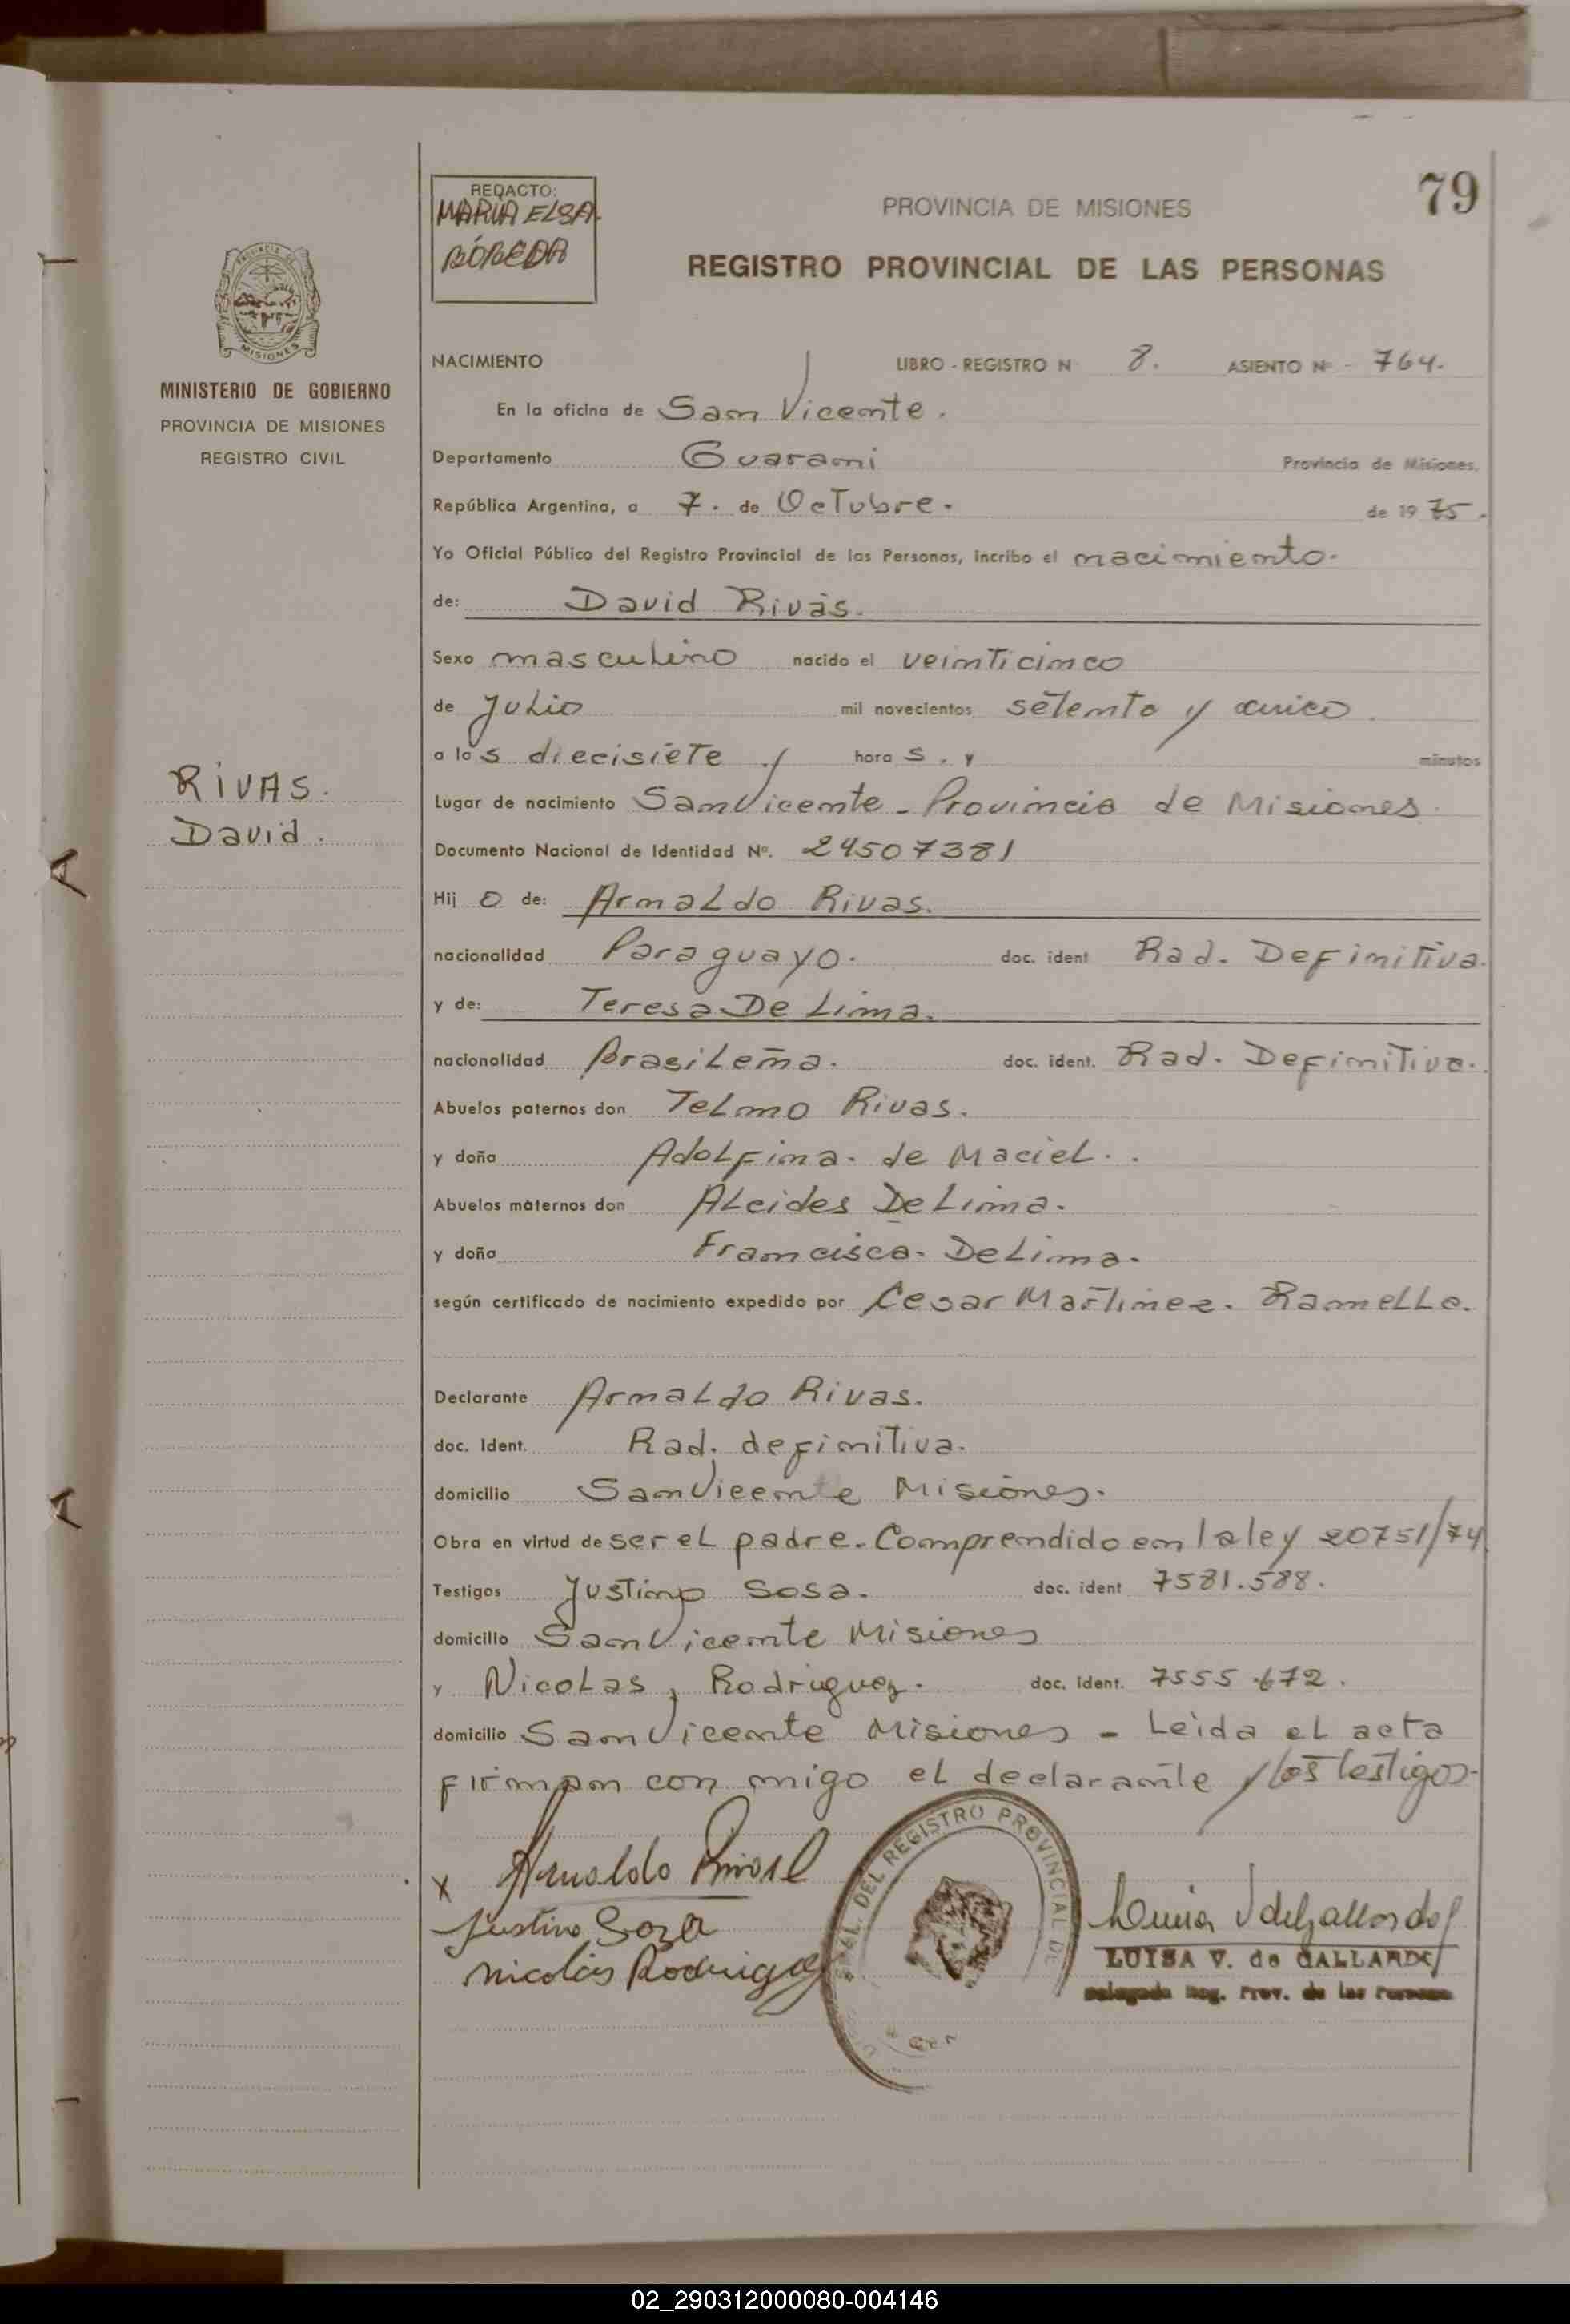 79
REDACTO:
MARIA ELSA
BÓREDA
PROVINCIA DE MISIONES
REGISTRO PROVINCIAL DE LAS PERSONAS
MISIONES
MINISTERIO DE GOBIERNO
PROVINCIA DE MISIONES
REGISTRO CIVIL
RIVAS.
David.
NACIMIENTO LIBRO - REGISTRO N 8. ASIENTO Nº - 764.
En la oficina de San Vicente.
Departamento Guarani Provincia de Misiones.
República Argentina, a 7. de Octubre. de 1975.
Yo Oficial Público del Registro Provincial de las Personas, incribo el nacimiento.
de: David Rivas.
Sexo masculino nacido el veinticinco
de Julio mil novecientos setenta y cinco.
a las diecisiete hora s. y minutos
Lugar de nacimiento San Vicente - Provincia de Misiones.
Documento Nacional de Identidad Nº. 24507381
Hij o de: Arnaldo Rivas.
nacionalidad Paraguayo. doc. ident Rad. Definitiva.
y de: Teresa De Lima.
nacionalidad Brasileña. doc. ident. Rad. Definitiva.
Abuelos paternos don Telmo Rivas.
y doña Adolfina. de Maciel.
Abuelos maternos don Alcides De Lima.
y doña Francisca. De Lima.
según certificado de nacimiento expedido por Cesar Martinez. Ramella.
Declarante Arnaldo Rivas.
doc. Ident. Rad. definitiva.
domicilio San Vicente Misiones.
Obra en virtud de ser el padre. Comprendido en la ley 20751/74
Testigos Justino Sosa. doc. ident 7581.588.
domicilio San Vicente Misiones
y Nicolas, Rodriguez. doc. ident. 7555.672.
domicilio San Vicente Misiones - Leida el acta
firman con migo el declarante y los testigos-
x Arnaldo Rivas
Justino Soza
Nicolás Rodriguez
DEL REGISTRO PROVINCIAL DE
LUISA V. de GALLARDO
Delegada Reg. Prov. de las Personas
02_290312000080-004146